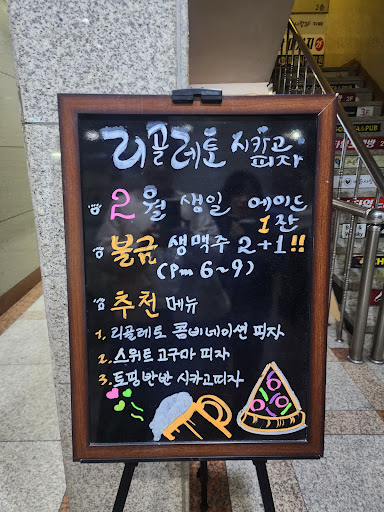 리골레토 시카고
피자
2월 생일 에이드
1잔
불금 생맥주 2+1!!
(Pm 6~9)
추천 메뉴
1. 리골레토 콤비네이션 피자
2. 스위트 고구마 피자
3. 토핑반반 시카고피자